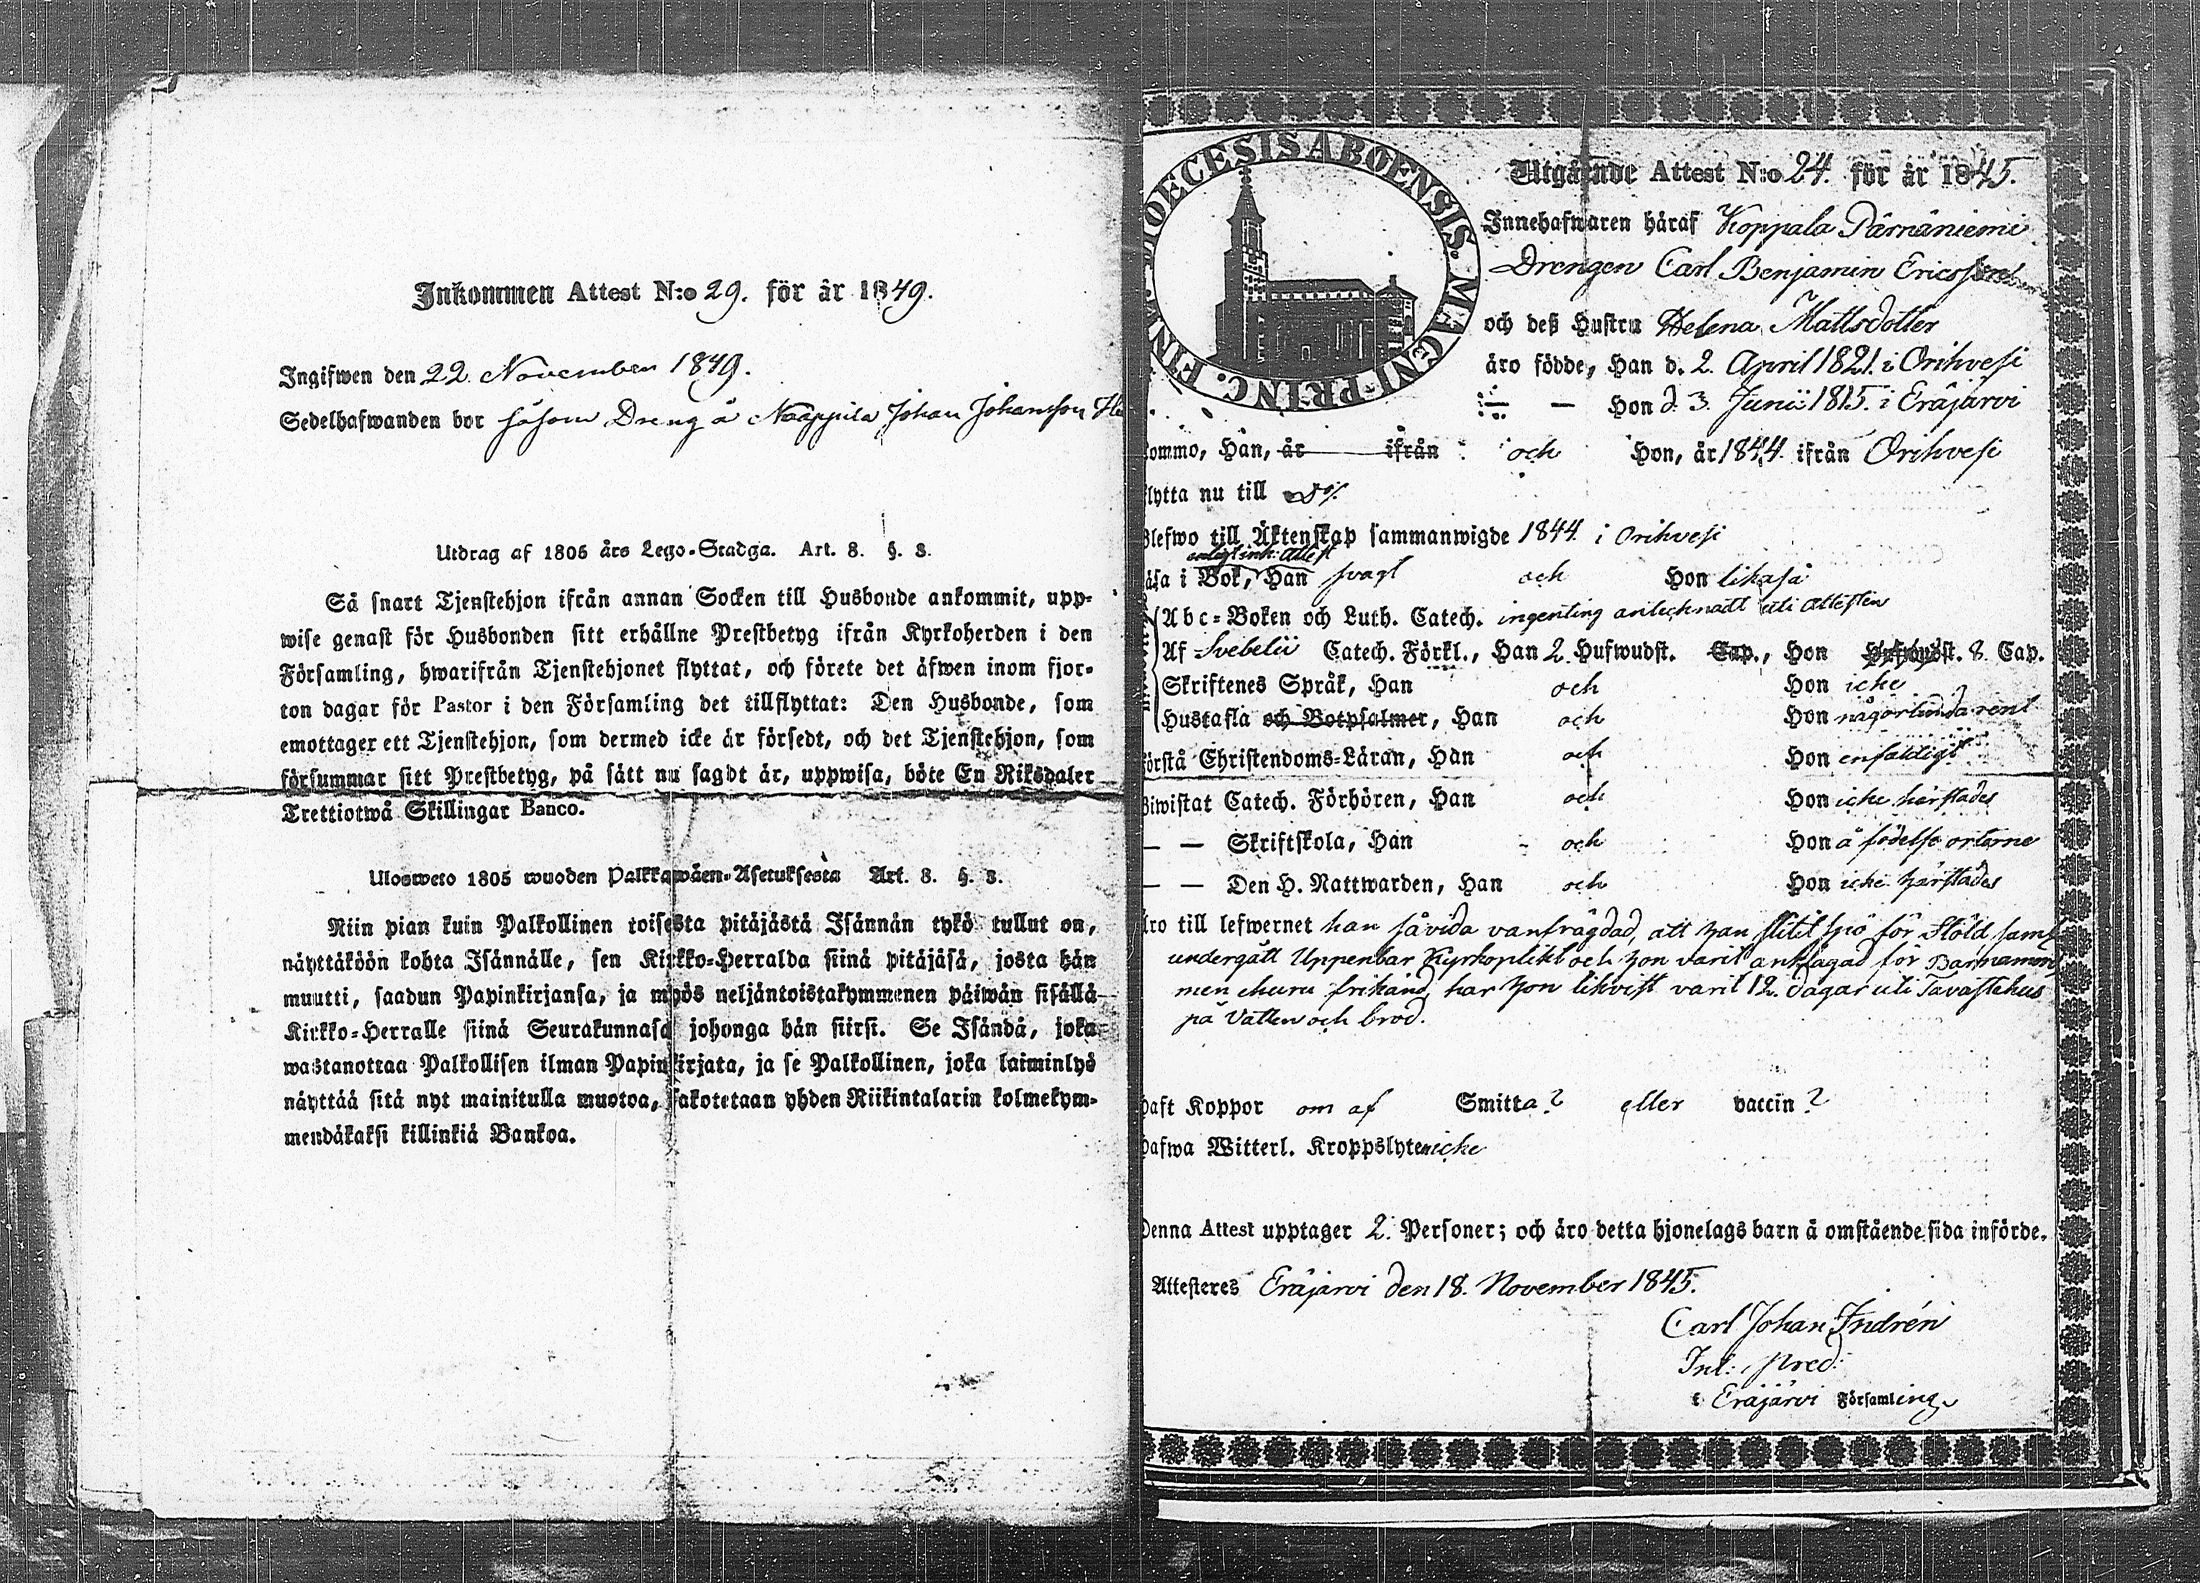 Inkommen Attest N:o 29. för år 1849.
Ingifwen den 22 November 1849.
Sedelhafwanden bor såsom Dreng å Naappila Johan Johansson
Utdrag af 1805 års Lego-Stadga. Art. 8. §. 3.
Så snart Tjenstehjon ifrån annan Socken till Husbonde ankommit, upp-
wise genast för Husbonden sitt erhållne Prestbetyg ifrån Kyrkoherden i den
Församling, hwarifrån Tjenstehjonet flyttat, och förete det äfwen inom fjor-
ton dagar för Pastor i den Församling det tillflyttat: Den Husbonde, som
emottager ett Tjenstehjon, som dermed icke är försedt, och det Tjenstehjon, som
försummar sitt Prestbetyg, på sätt nu sagdt är, uppwisa, böte En Riksdaler
Trettiotwå Skillingar Banco.
Ulosweto 1805 wuoden Palkkawäen-Asetuksesta Art. 8. §. 3.
Niin pian kuin Palkollinen toisesta pitäjästä Isännän tykö tullut on,
näyttäköön kohta Isännälle, sen Kirkko-Herralda siinä pitäjäsä, josta hän
muutti, saadun Papinkirjansa, ja myös neljäntoistakymmenen päiwän sisällä
Kirkko-Herralle siinä Seurakunnasa johonga hän siirsi. Se Isändä, joka
wastanottaa Palkollisen ilman Papinkirjata, ja se Palkollinen, joka laiminlyö
näyttää sitä nyt mainitulla muotoa, sakotetaan yhden Riikintalarin kolmekym-
mendäkaksi killinkiä Bankoa.
DIOECESIS ABOENSIS. MAGNI PRINC. FINL.
Utgående Attest N:o 24. för år 1845.
Innehafwaren häraf Koppala Pärnäniemi
Drengen Carl Benjamin Ericsson
och deß Hustru Helena Mattsdotter
äro födde, Han d. 2. April 1821. i Orihvesi
— Hon d. 3. Junii 1815. i Eräjärvi
kommo, Han, år ifrån och Hon, år 1844. ifrån Orihvesi
flytta nu till D:o
Blefwo till Äktenskap sammanwigde 1844. i Orihvesi
enligt ink: attest
läsa i Bok, Han svagt och Hon likaså
Abc-Boken och Luth. Catech. ingenting antecknadt uti attesten
Af Svebelii Catech. Förkl., Han 2. Hufwudst. Cap., Hon Hufwudst. 8. Cap.
Skriftenes Språk, Han och Hon icke
Hustafla och Botpsalmer, Han och Hon någorlunda rent
förstå Christendoms-Läran, Han och Hon enfaldigt
Biwistat Catech. Förhören, Han och Hon icke härstädes
— — Skriftskola, Han och Hon å födelse orterne
— — Den H. Nattwarden, Han och Hon icke härstädes
Äro till lefwernet han såvida vanfrägdad, att han slitit spö för Stöld, samt
undergått Uppenbar Kyrkoplikt och hon varit anklagad för Barnamord
men churu frikänd, har hon likvist varit 12. dagar uti Tavastehus
på Vatten och bröd.
haft Koppor om af Smitta? eller vaccin?
hafwa Witterl. Kroppslyten icke
Denna Attest upptager 2. Personer; och äro detta hjonelags barn å omstående sida införde.
Attesteres Eräjärvi den 18. November 1845.
Carl Johan Indrén
Int: Pred:
i Eräjärvi Församling.